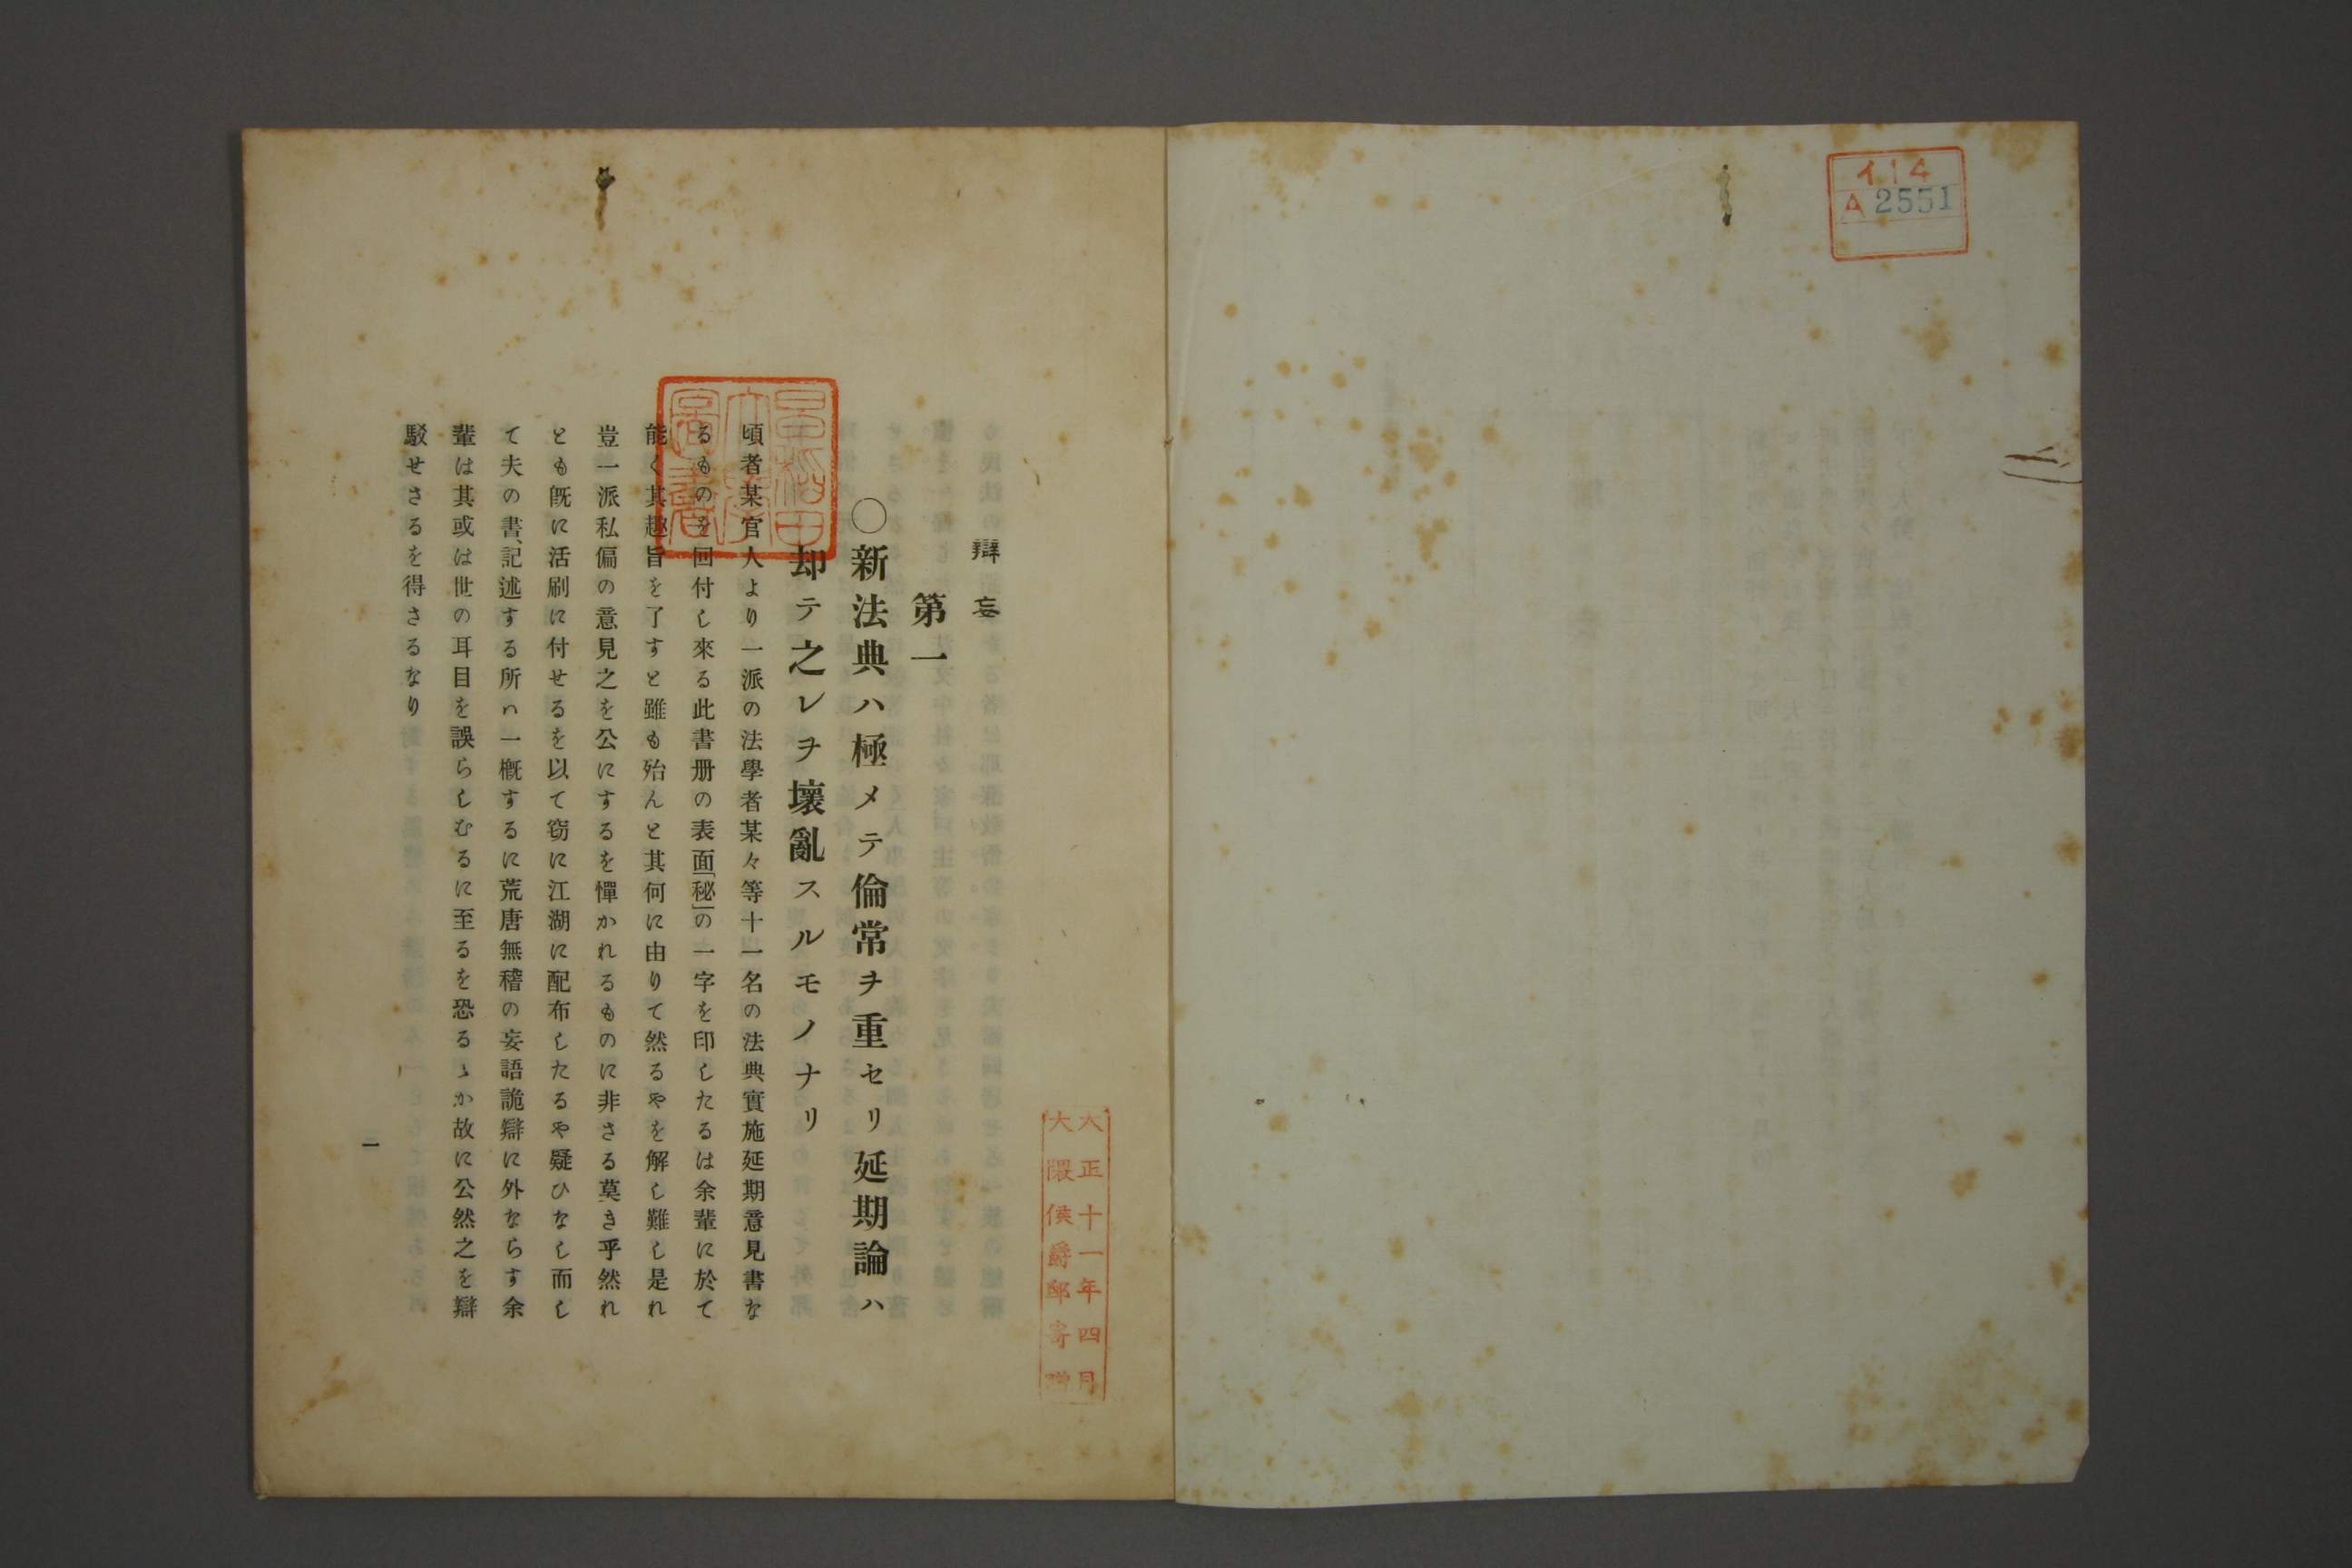 イ14
A 2551
大正十一年四月
大隈侯爵邸寄贈
早稲田
大學
圖書
辯妄
第一
○新法典ハ極メテ倫常ヲ重セリ延期論ハ
却テ之レヲ壞亂スルモノナリ
頃者某官人より一派の法學者某々等十一名の法典實施延期意見書な
るものを回付し來る此書册の表面「秘」の一字を印したるは余輩に於て
能く其趣旨を了すと雖も殆んと其何に由りて然るやを解し難し是れ
豈一派私偏の意見之を公にするを憚かれるものに非さる莫き乎然れ
とも旣に活刷に付せるを以て窃に江湖に配布したるや疑ひなし而し
て夫の書、記述する所ハ一概するに荒唐無稽の妄語詭辯に外ならす余
輩は其或は世の耳目を誤らしむるに至るを恐るゝか故に公然之を辯
駁せさるを得さるなり
一